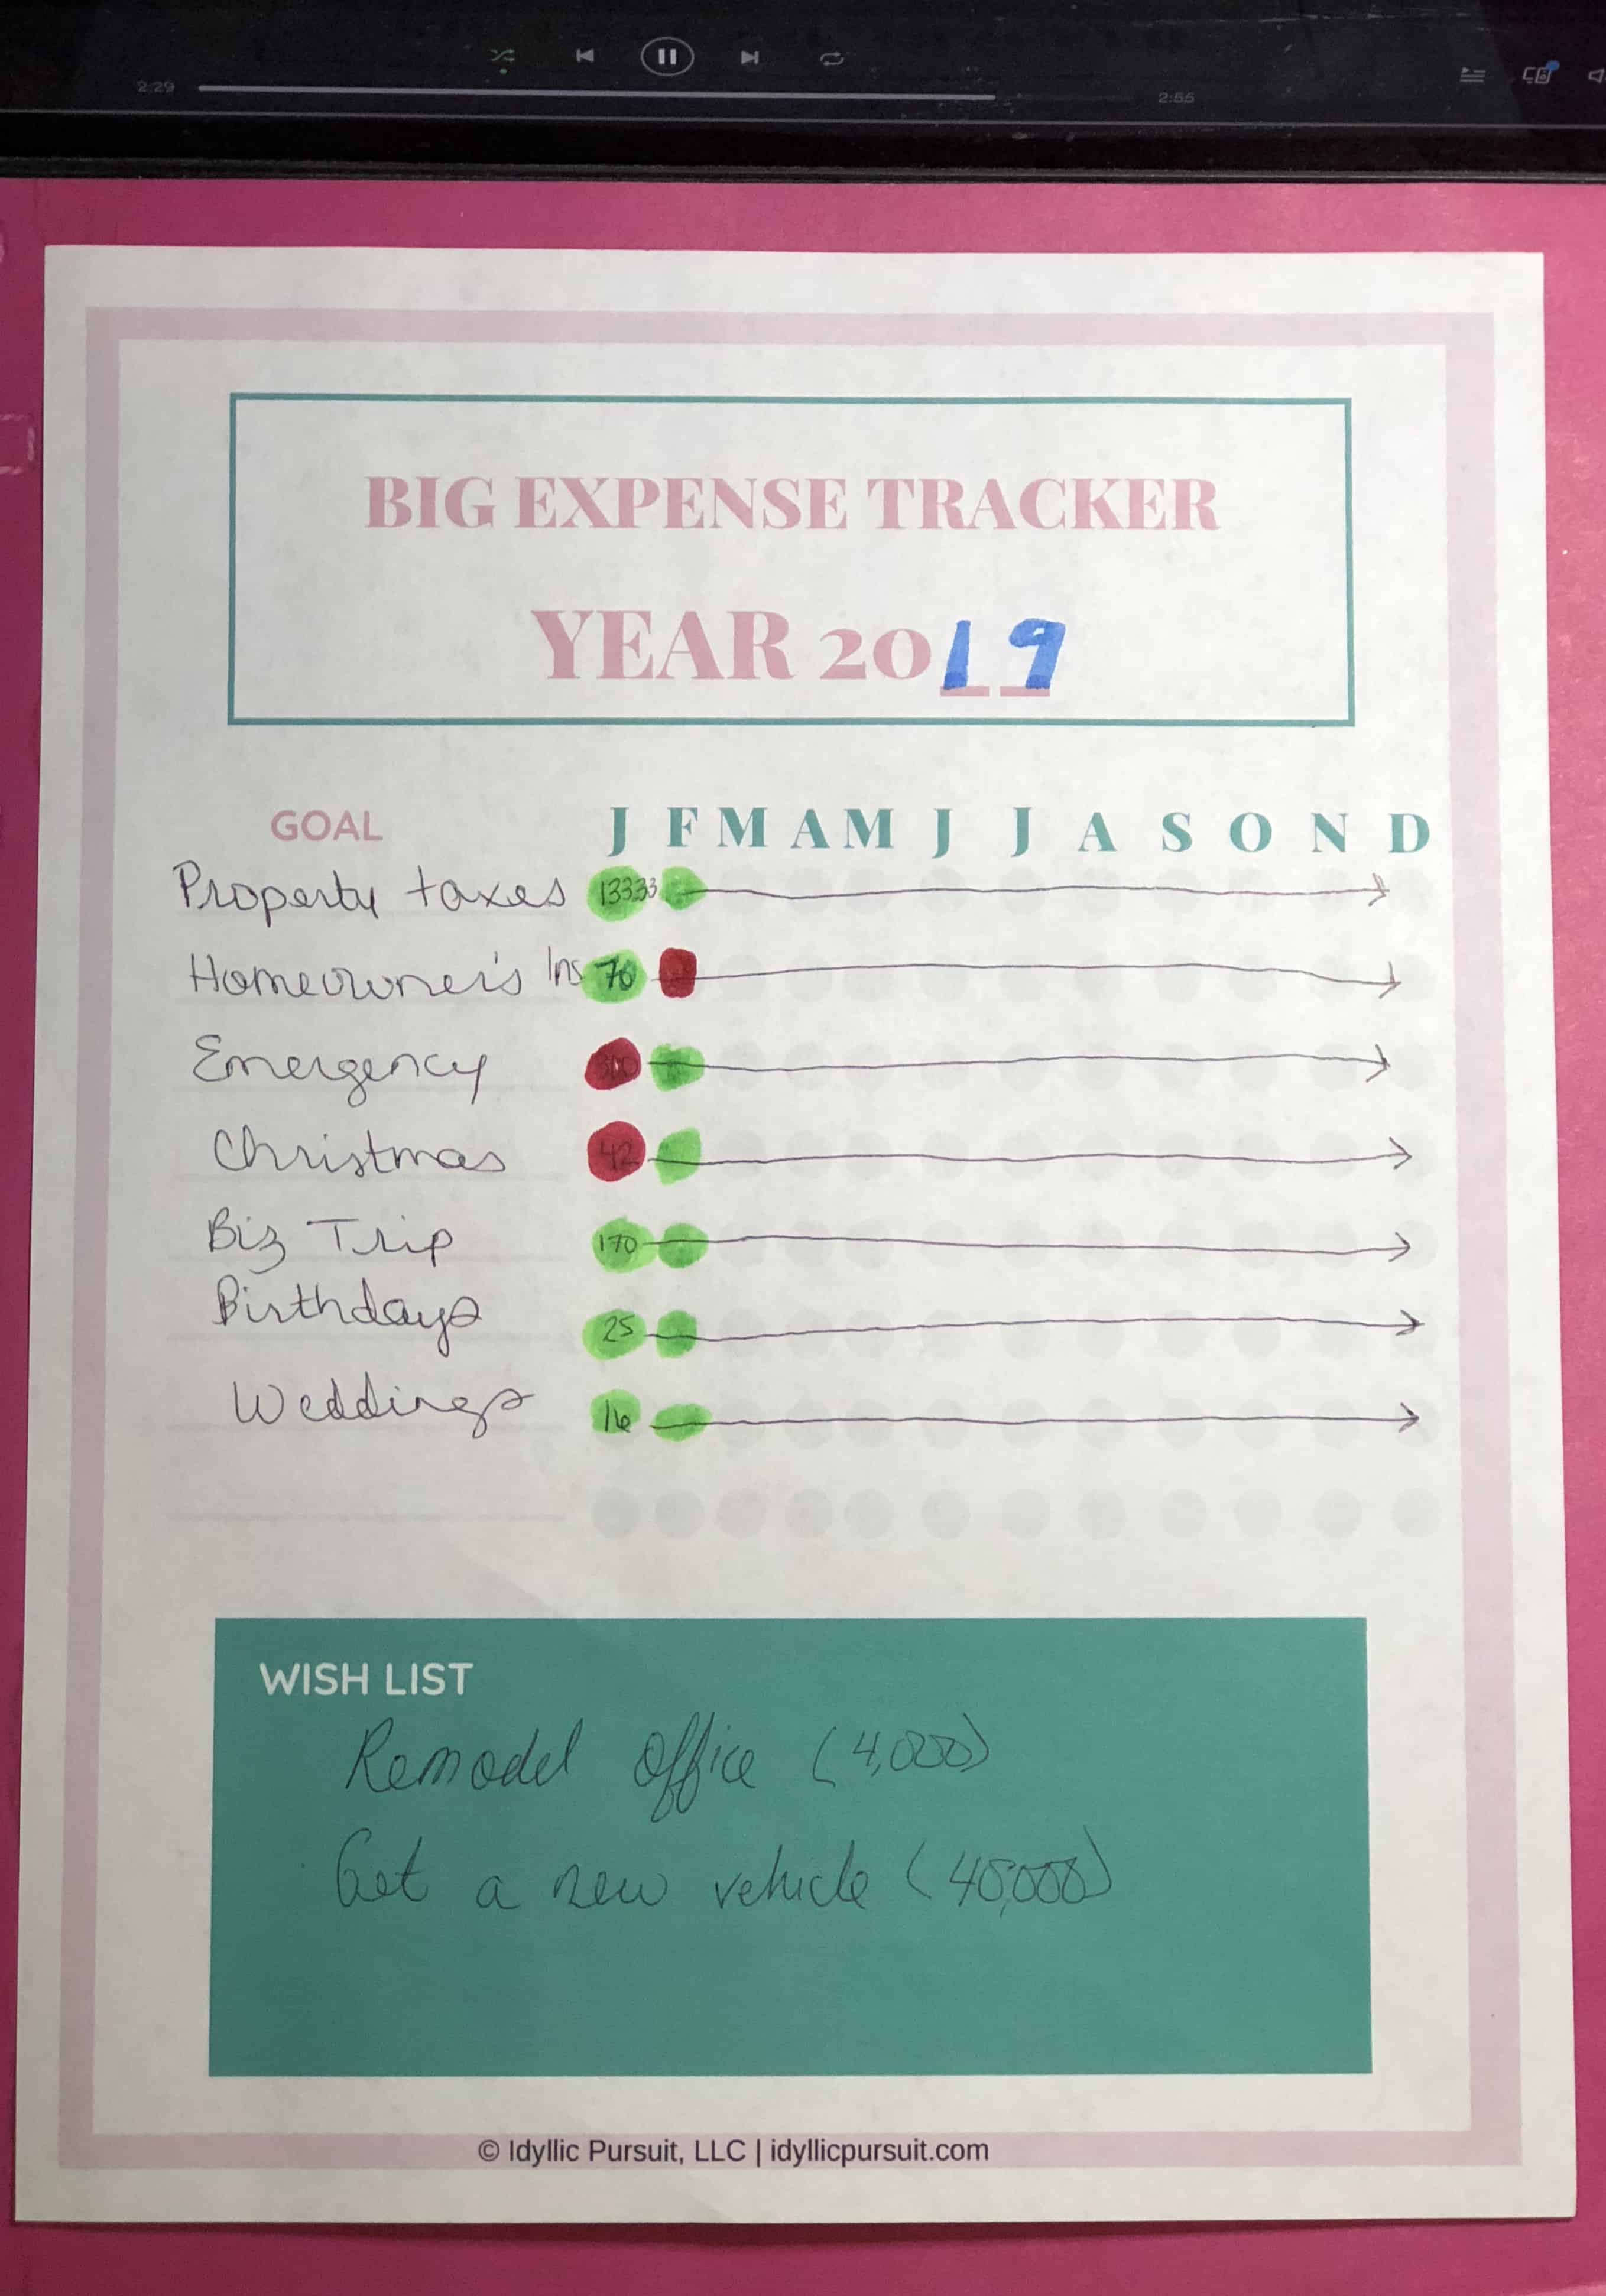 2:29
2:55
BIG EXPENSE TRACKER
YEAR 2019
GOAL J F M A M J J A S O N D
Property taxes 13333
Homeowner's Ins 70
Emergency 300
Christmas 42
Biz Trip 170
Birthdays 25
Weddings 16
WISH LIST
Remodel Office (4,000)
Get a new vehicle (40,000)
© Idyllic Pursuit, LLC | idyllicpursuit.com